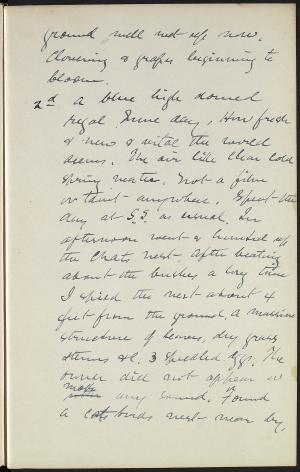 ground well wet up now.
Clovering & grapes beginning to
bloom.
2d A blue high domed
regal June day, How fresh
& new & vital the world
seems. The air like clear cold
spring water. Not a film
or taint anywhere. Spent the
day at S.S. as usual. In
afternoon went & hunted up
the Chats nest. After beating
about the bushes a long time
I spied the nest about 4
feet from the ground, a massive
structure of leaves, dry grass
stems &c. 3 speckled eggs. The
owner did not appear or
make any sound. Found
a cat birds nest near by,